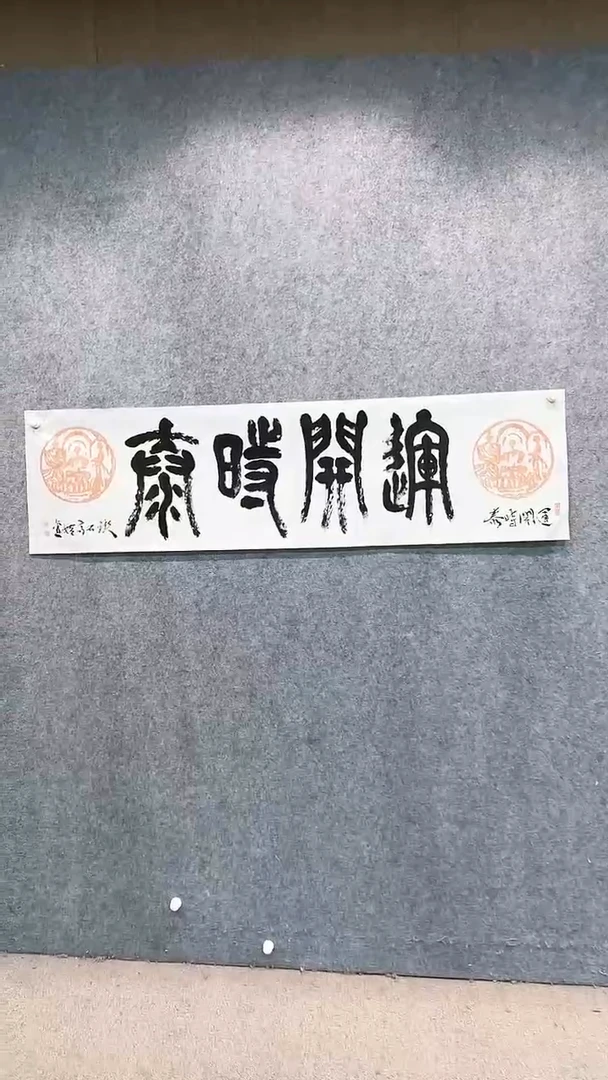 運開時泰
運開時泰